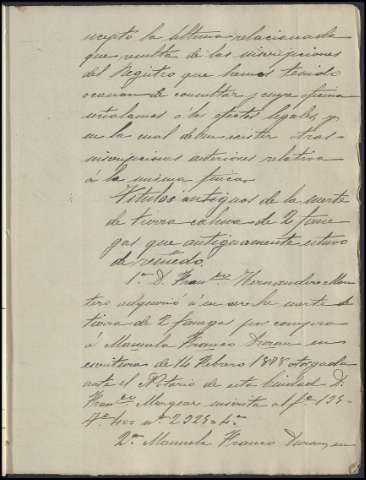 cepto la última relacionada
que resulta de las inscripciones
del Registro que hemos tenido
ocasion de consultar y cuya oficina
señalamos á los efectos legales, y
en la cual deben existir otras
inscripciones anteriores relativa
á la misma finca.
Titulos antiguos de la suerte
de tierra calma de 2 fane-
gas que antiguamente estuvo
de viñedo.
1º D. Franco Hernandez Mon-
tero adquirió á su vez la suerte de
tierra de 2 fanegas por compra
á Manuela Franco Duran en
escritura de 14 Febrero 1888 otorgada
ante el Notario de esta Ciudad D.
Franco inscrita al fº 125-
Tº nº 2925
2º Manuela Franco Duran, en